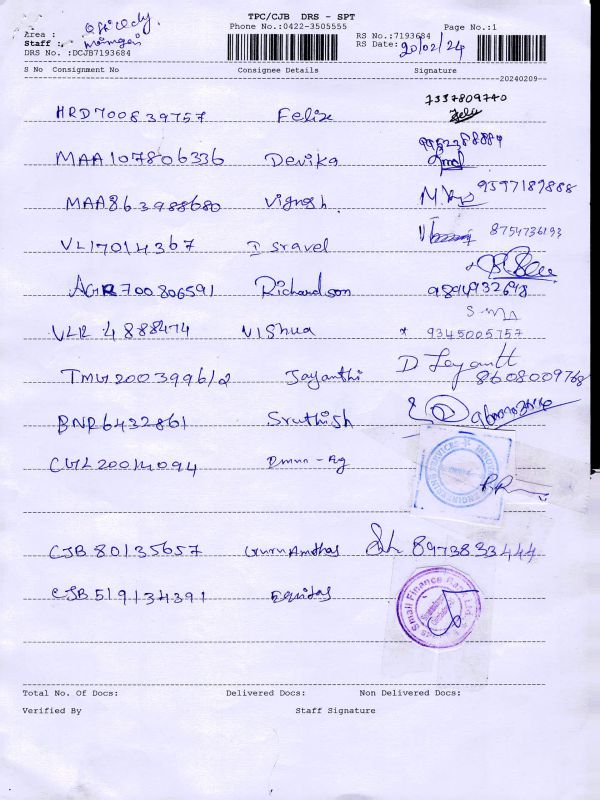 TPC/CJB DRS - SPT
Phone No.:0422-3505555
Page No.:1
Area :
Staff :
DRS No. :DCJB7193684
RS No.:7193684
RS Date: 20/02/24
S No Consignment No Consignee Details Signature
20240209
7337809740
HRD700839757 Felix
MAA107806336 Devika
MAA863988680 Vignesh. 9597187888
VL17014367 Isravel 8754736193
AGR700806591 Richardson 9894932698
VLR 4888474 Vishua 9345005757
TMW200399612 Jayanthi D Jayantt
8608009768
BNR6432861 Sruthish
CGL20014094
CJB 80135657 8973833444
CJB 519134391 Equitas
Small Finance Bank Ltd.
Total No. Of Docs: Delivered Docs: Non Delivered Docs:
Verified By Staff Signature